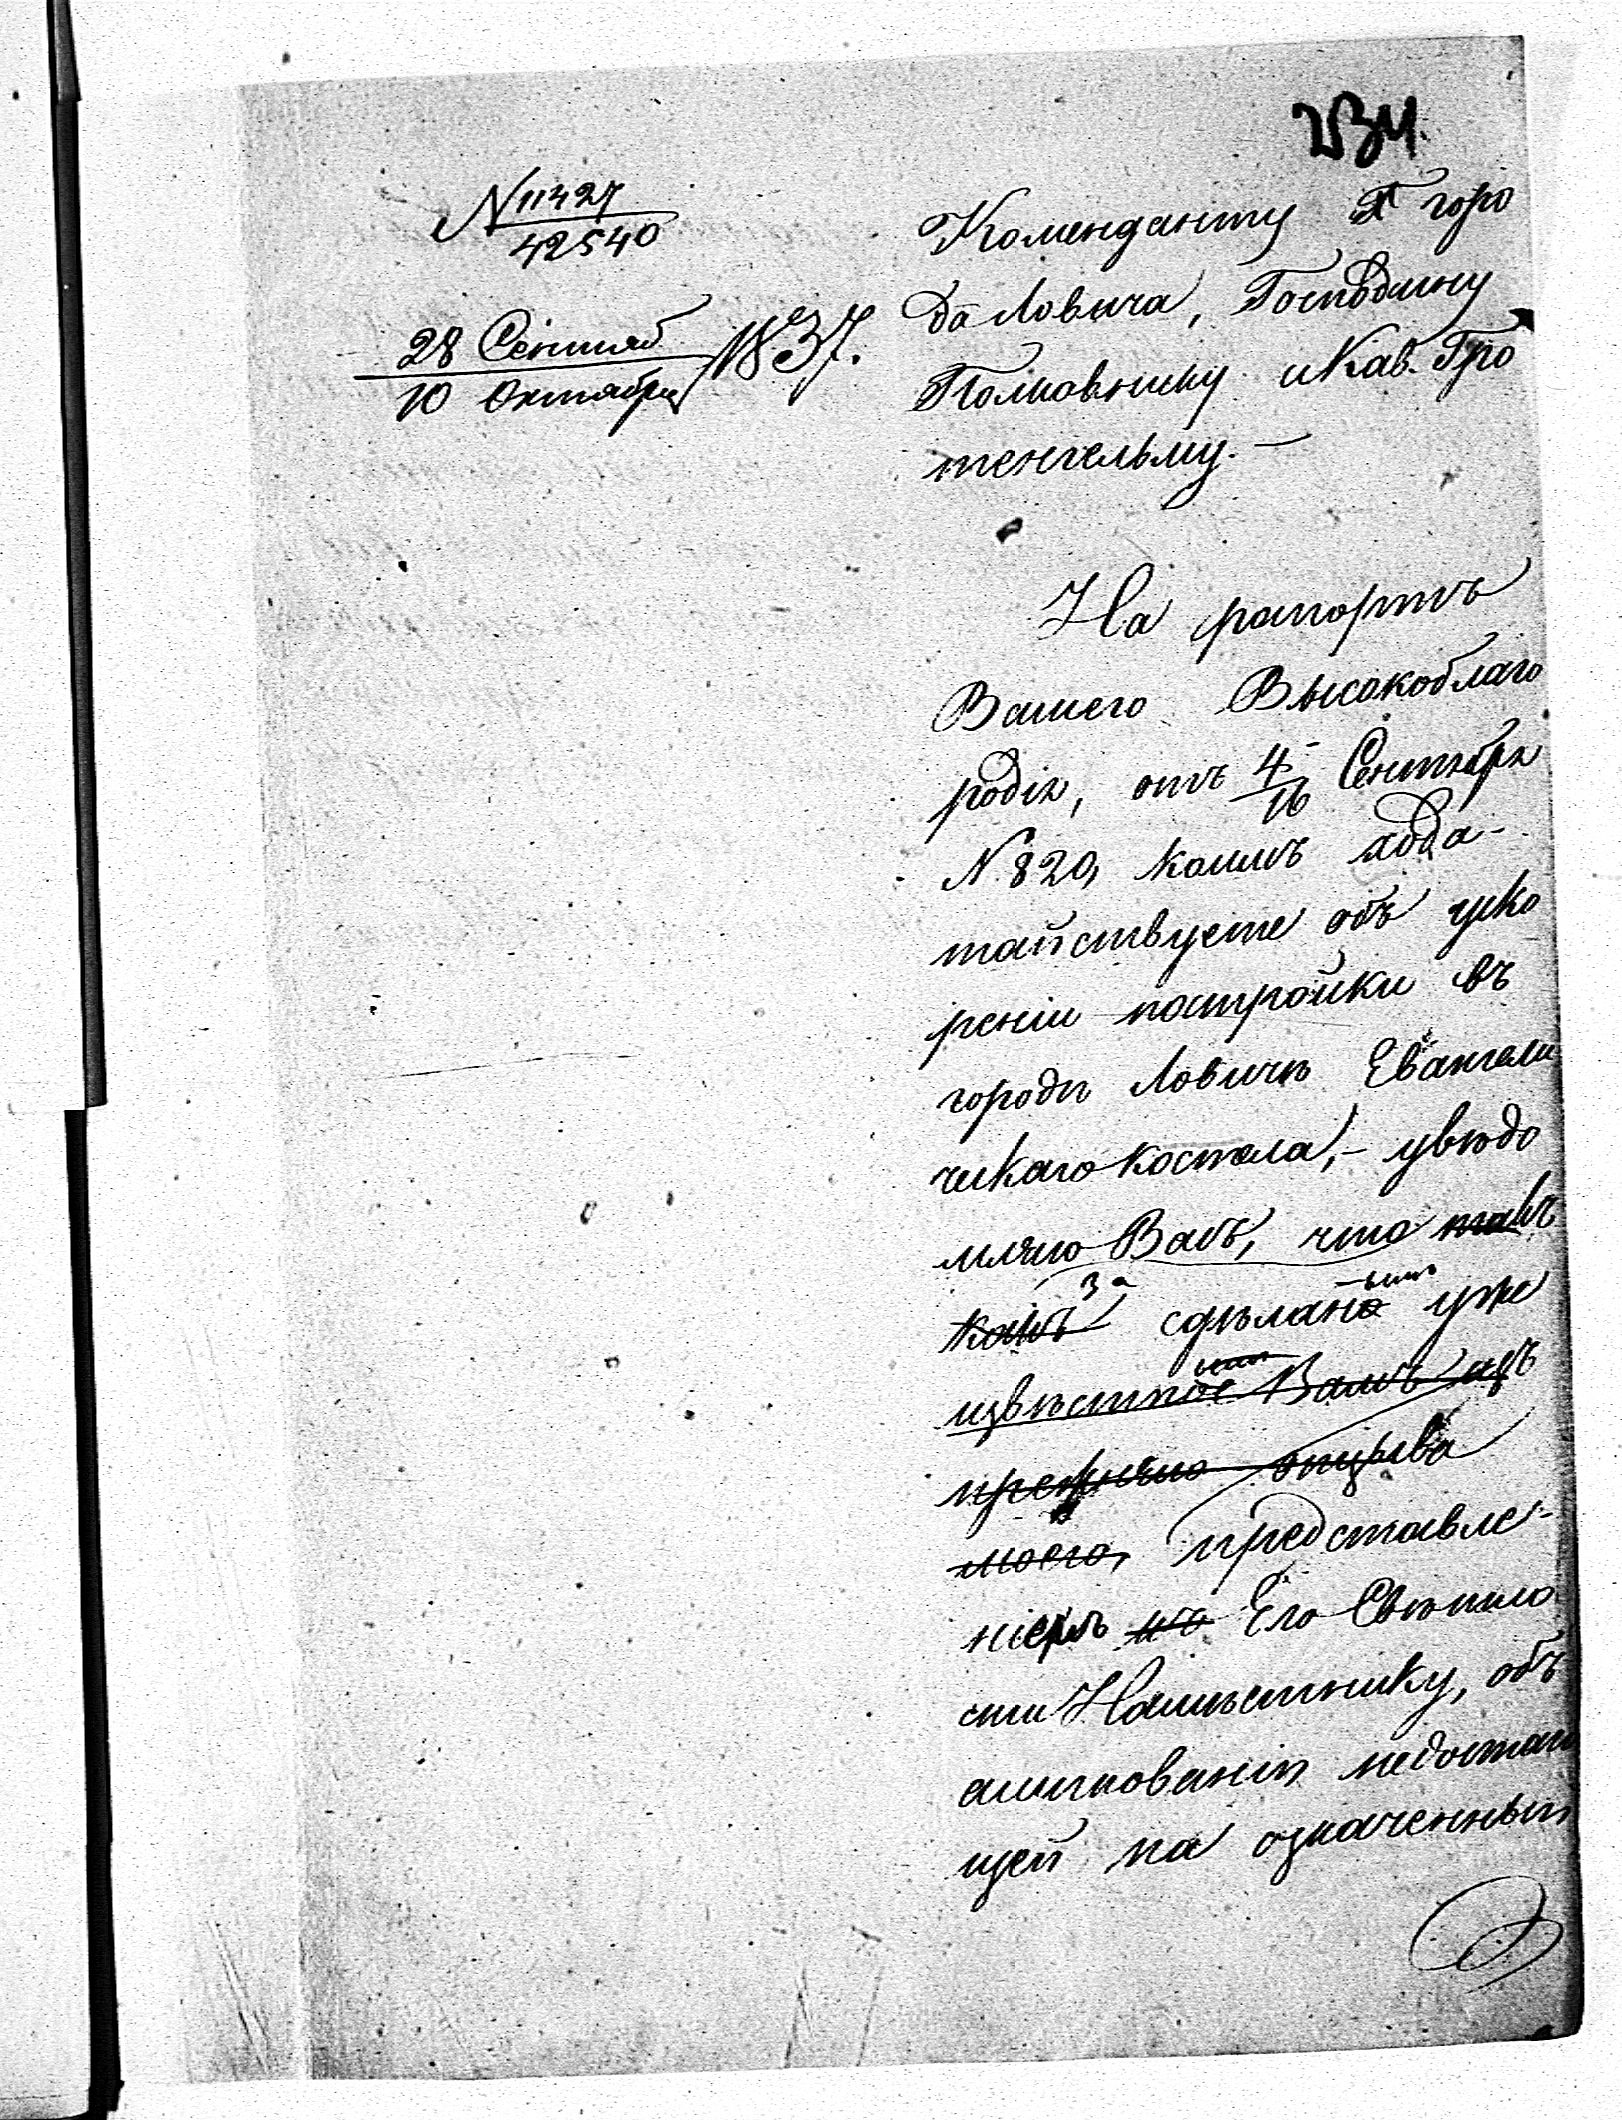 234.
N 11427
42540
28 Сентяб
10 Октября 1837.
Коменданту Г горо
да Ловича, Господину
Полковнику и Кав. Гро
тенгельму. —
На рапортъ
Вашего Высокоблаго
родія, отъ 4/16 Сентября
N. 820, коимъ хода-
тайствуете объ уско
реніи постройки въ
городѣ Ловичѣ Евангели
ческаго костела, — увѣдо
мляю Васъ, что такъ
какъ за сдѣлано -нымъ уже
извѣстное Вамъ изъ
прежняго отзыва
моего, представле-
ніемъ Его Свѣтло
сти Намѣстнику, объ
асигнованіи недостаю
щей на означенный